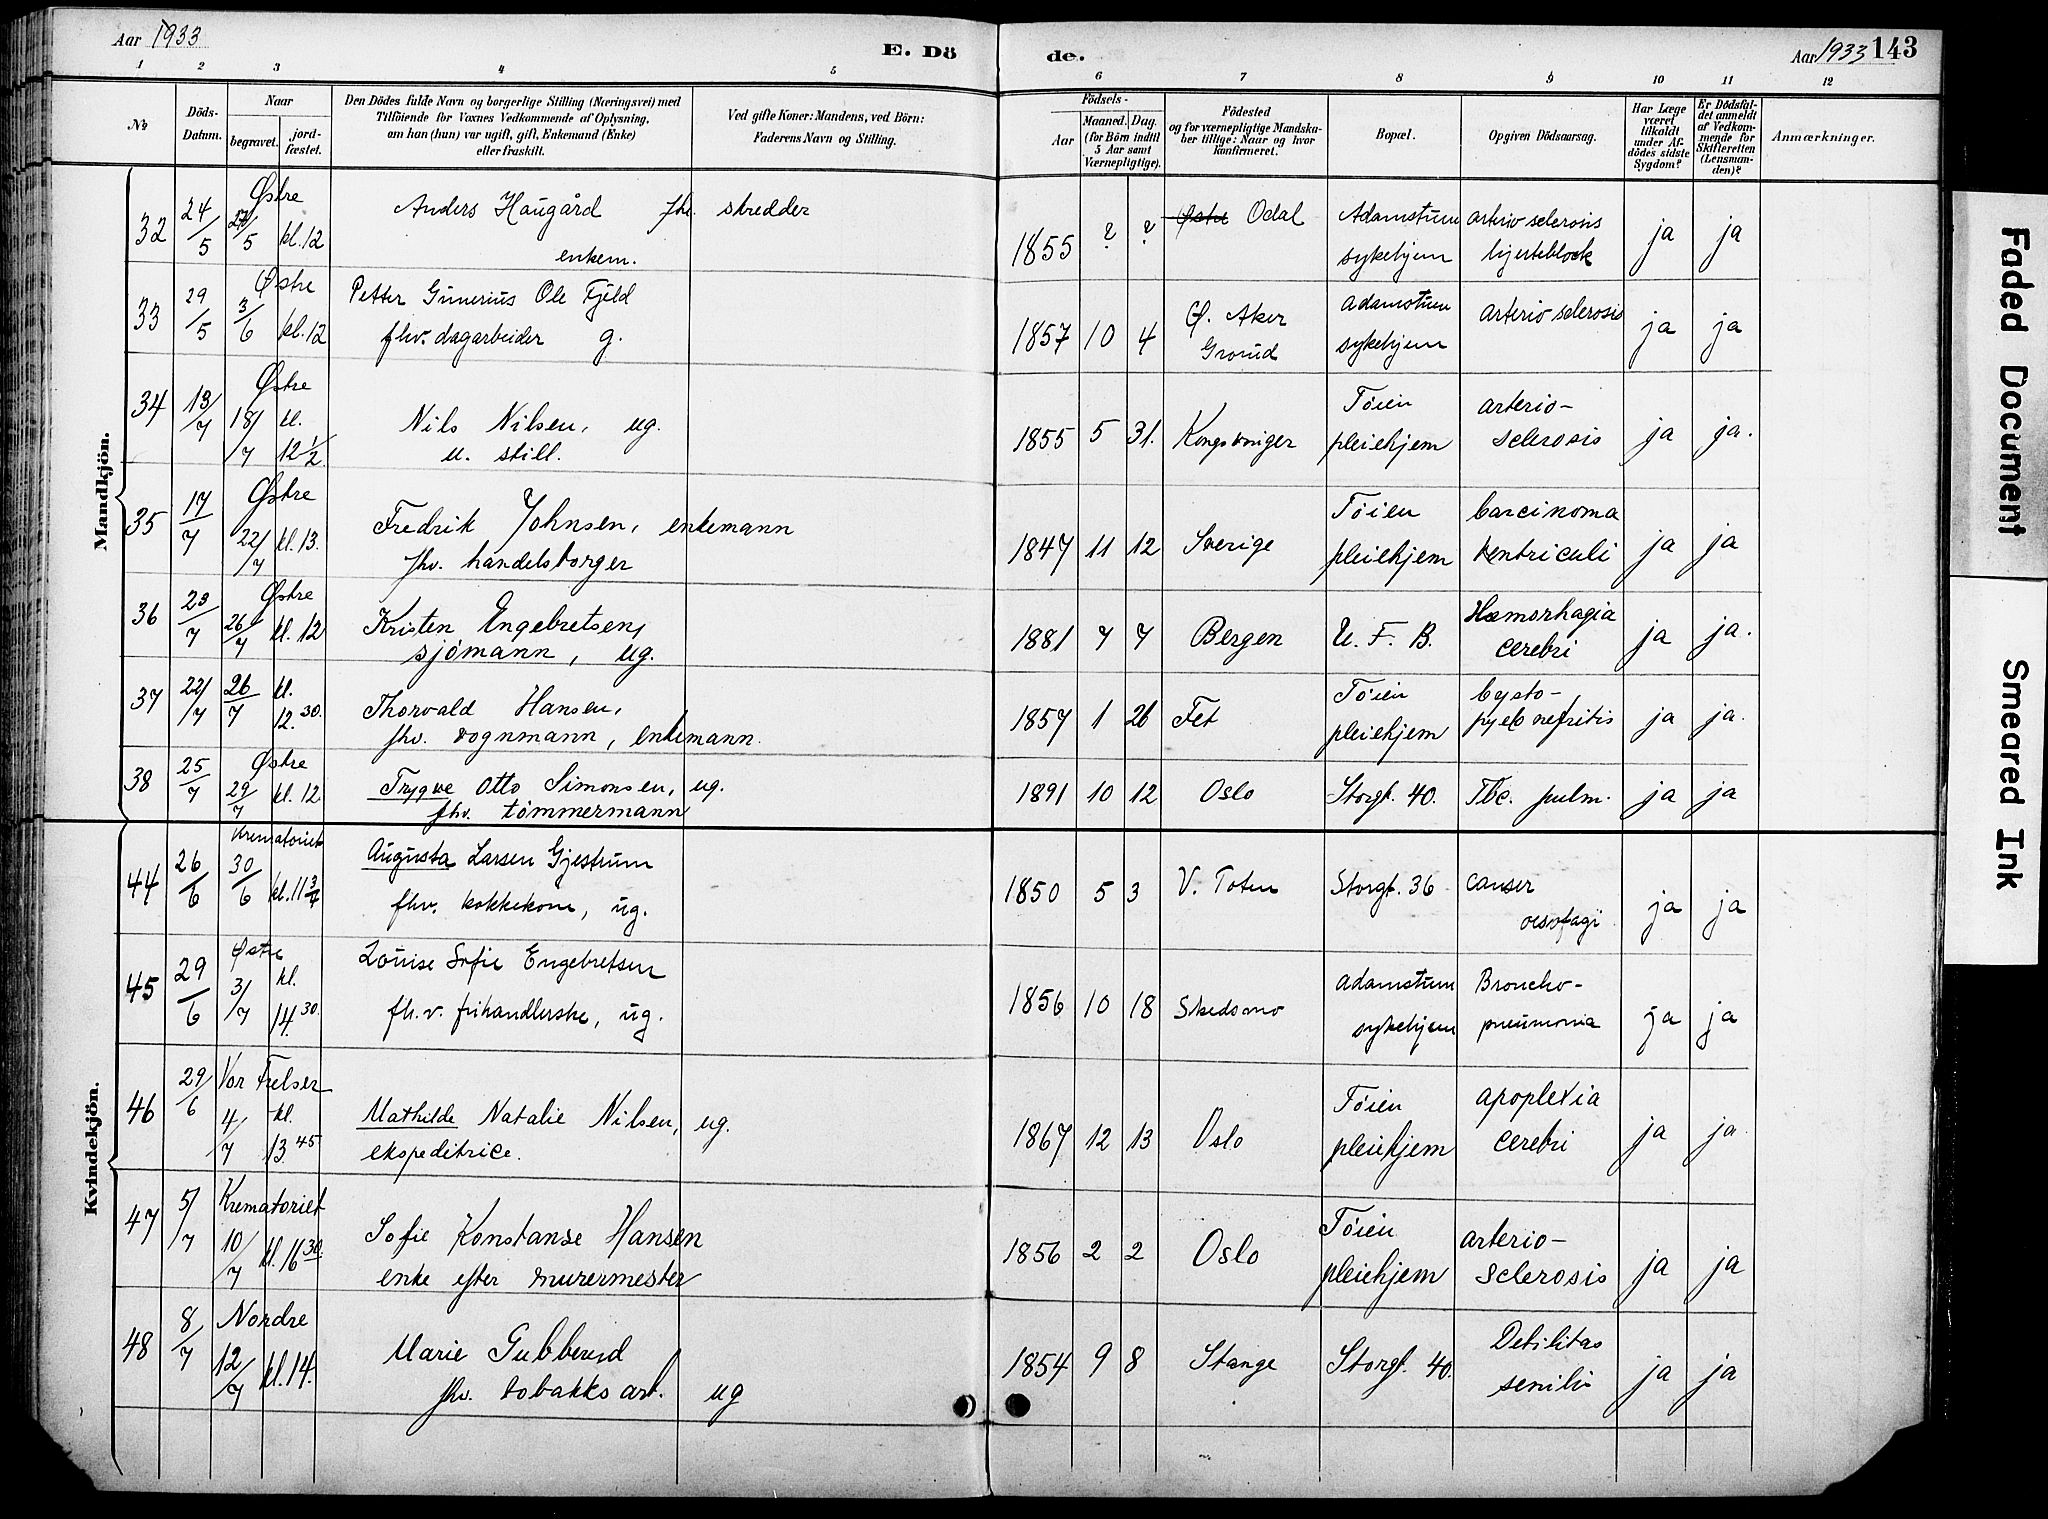 Aar 1933
E. Dö
de.
Aar 1933 143
1 2 3 4 5 6 7 8 9 10 11 12
No
Döds-Datum.
Naar
begravet.
jordfæstet.
Den Dödes fulde Navn og borgerlige Stilling (Næringsvei) med
Tilföiende for Voxnes Vedkommende af Oplysning,
om han (hun) var ugift, gift, Enkemand (Enke)
eller fraskilt.
Ved gifte Koner: Mandens, ved Börn:
Faderens Navn og Stilling.
Födsels-
Aar
Maaned. Dag.
(for Börn indtil
5 Aar samt
Værnepligtige).
Födested
og for værnepligtige Mandska-
ber tillige: Naar og hvor
konfirmeret.
Bopæl.
Opgiven Dödsaarsag.
Har Læge
været
tilkaldt
under Af-
dödes sidste
Sygdom?
Er Dödsfal-
det anmeldt
af Vedkom-
mende for
Skifteretten
(Lensman-
den)?
Anmærkninger.
Mandkjön.
32 24/5 Østre 27/5 kl. 12 Anders Haugård fhv. skredder
enkem.
1855 ? ? Østre Odal Adamstuen
sykehjem
arterio sclerosis
hjerteblock
ja ja
33 29/5 Østre 3/6 kl. 12 Petter Gunerius Ole Fjeld
fhv. dagarbeider g.
1857 10 4 Ø. Aker
Grorud
Adamstuen
sykehjem
arterio sclerosis ja ja
34 13/7 Østre 18/7 kl. 12 1/2 Nils Nilsen, ug.
u. still.
1855 5 31. Kongsvinger Tøien
pleiehjem
arterio-
sclerosis
ja ja.
35 17/7 Østre 22/7 kl. 13. Fredrik Johnsen, enkemann
fhv. handelsborger
1847 11 12 Sverige Tøien
pleiehjem
Carcinoma
ventriculi
ja ja
36 23/7 Østre 26/7 kl. 12 Kristen Engebretsen,
sjømann, ug.
1881 7 7 Bergen U. F. B. Hæmorhagia
cerebri
ja ja.
37 22/7 26/7 kl. 12.30. Thorvald Hansen,
fhv. vognmann, enkemann.
1857 1 26 Fet Tøien
pleiehjem
Cysto-
pyelo nefritis
ja ja.
38 25/7 Østre 29/7 kl. 12 Trygve Otto Simonsen, ug.
fhv. tømmermann
1891 10 12 Oslo Storgt. 40. Tbc. pulm. ja ja
Kvindekjön.
44 26/6 Krematoriet 30/6 kl. 11 3/4 Augusta Larsen Gjestrum
fhv. kokkekone, ug.
1850 5 3 V. Toten Storgt. 36 canser
oesofagi
ja ja
45 29/6 Østre 3/7 kl. 14.30 Louise Sofie Engebretsen
fh.v. frihandlerske, ug.
1856 10 18 Skedsmo Adamstuen
sykehjem
Broncho-
pneumonia
ja ja
46 29/6 Vor Frelser 4/7 kl. 13.45 Mathilde Natalie Nilsen, ug.
ekspeditrice.
1867 12 13 Oslo Tøien
pleiehjem
apoplexia
cerebri
ja ja
47 5/7 Krematoriet 10/7 kl. 16.30. Sofie Konstanse Hansen
enke efter murermester
1856 2 2 Oslo Tøien
pleiehjem
arterio-
sclerosis
ja ja
48 8/7 Nordre 12/7 kl. 14. Marie Gubberud
fhv. tobakksarb. ug
1854 9 8 Stange Storgt. 40. Debilitas
senilis
ja ja
Faded Document
Smeared Ink